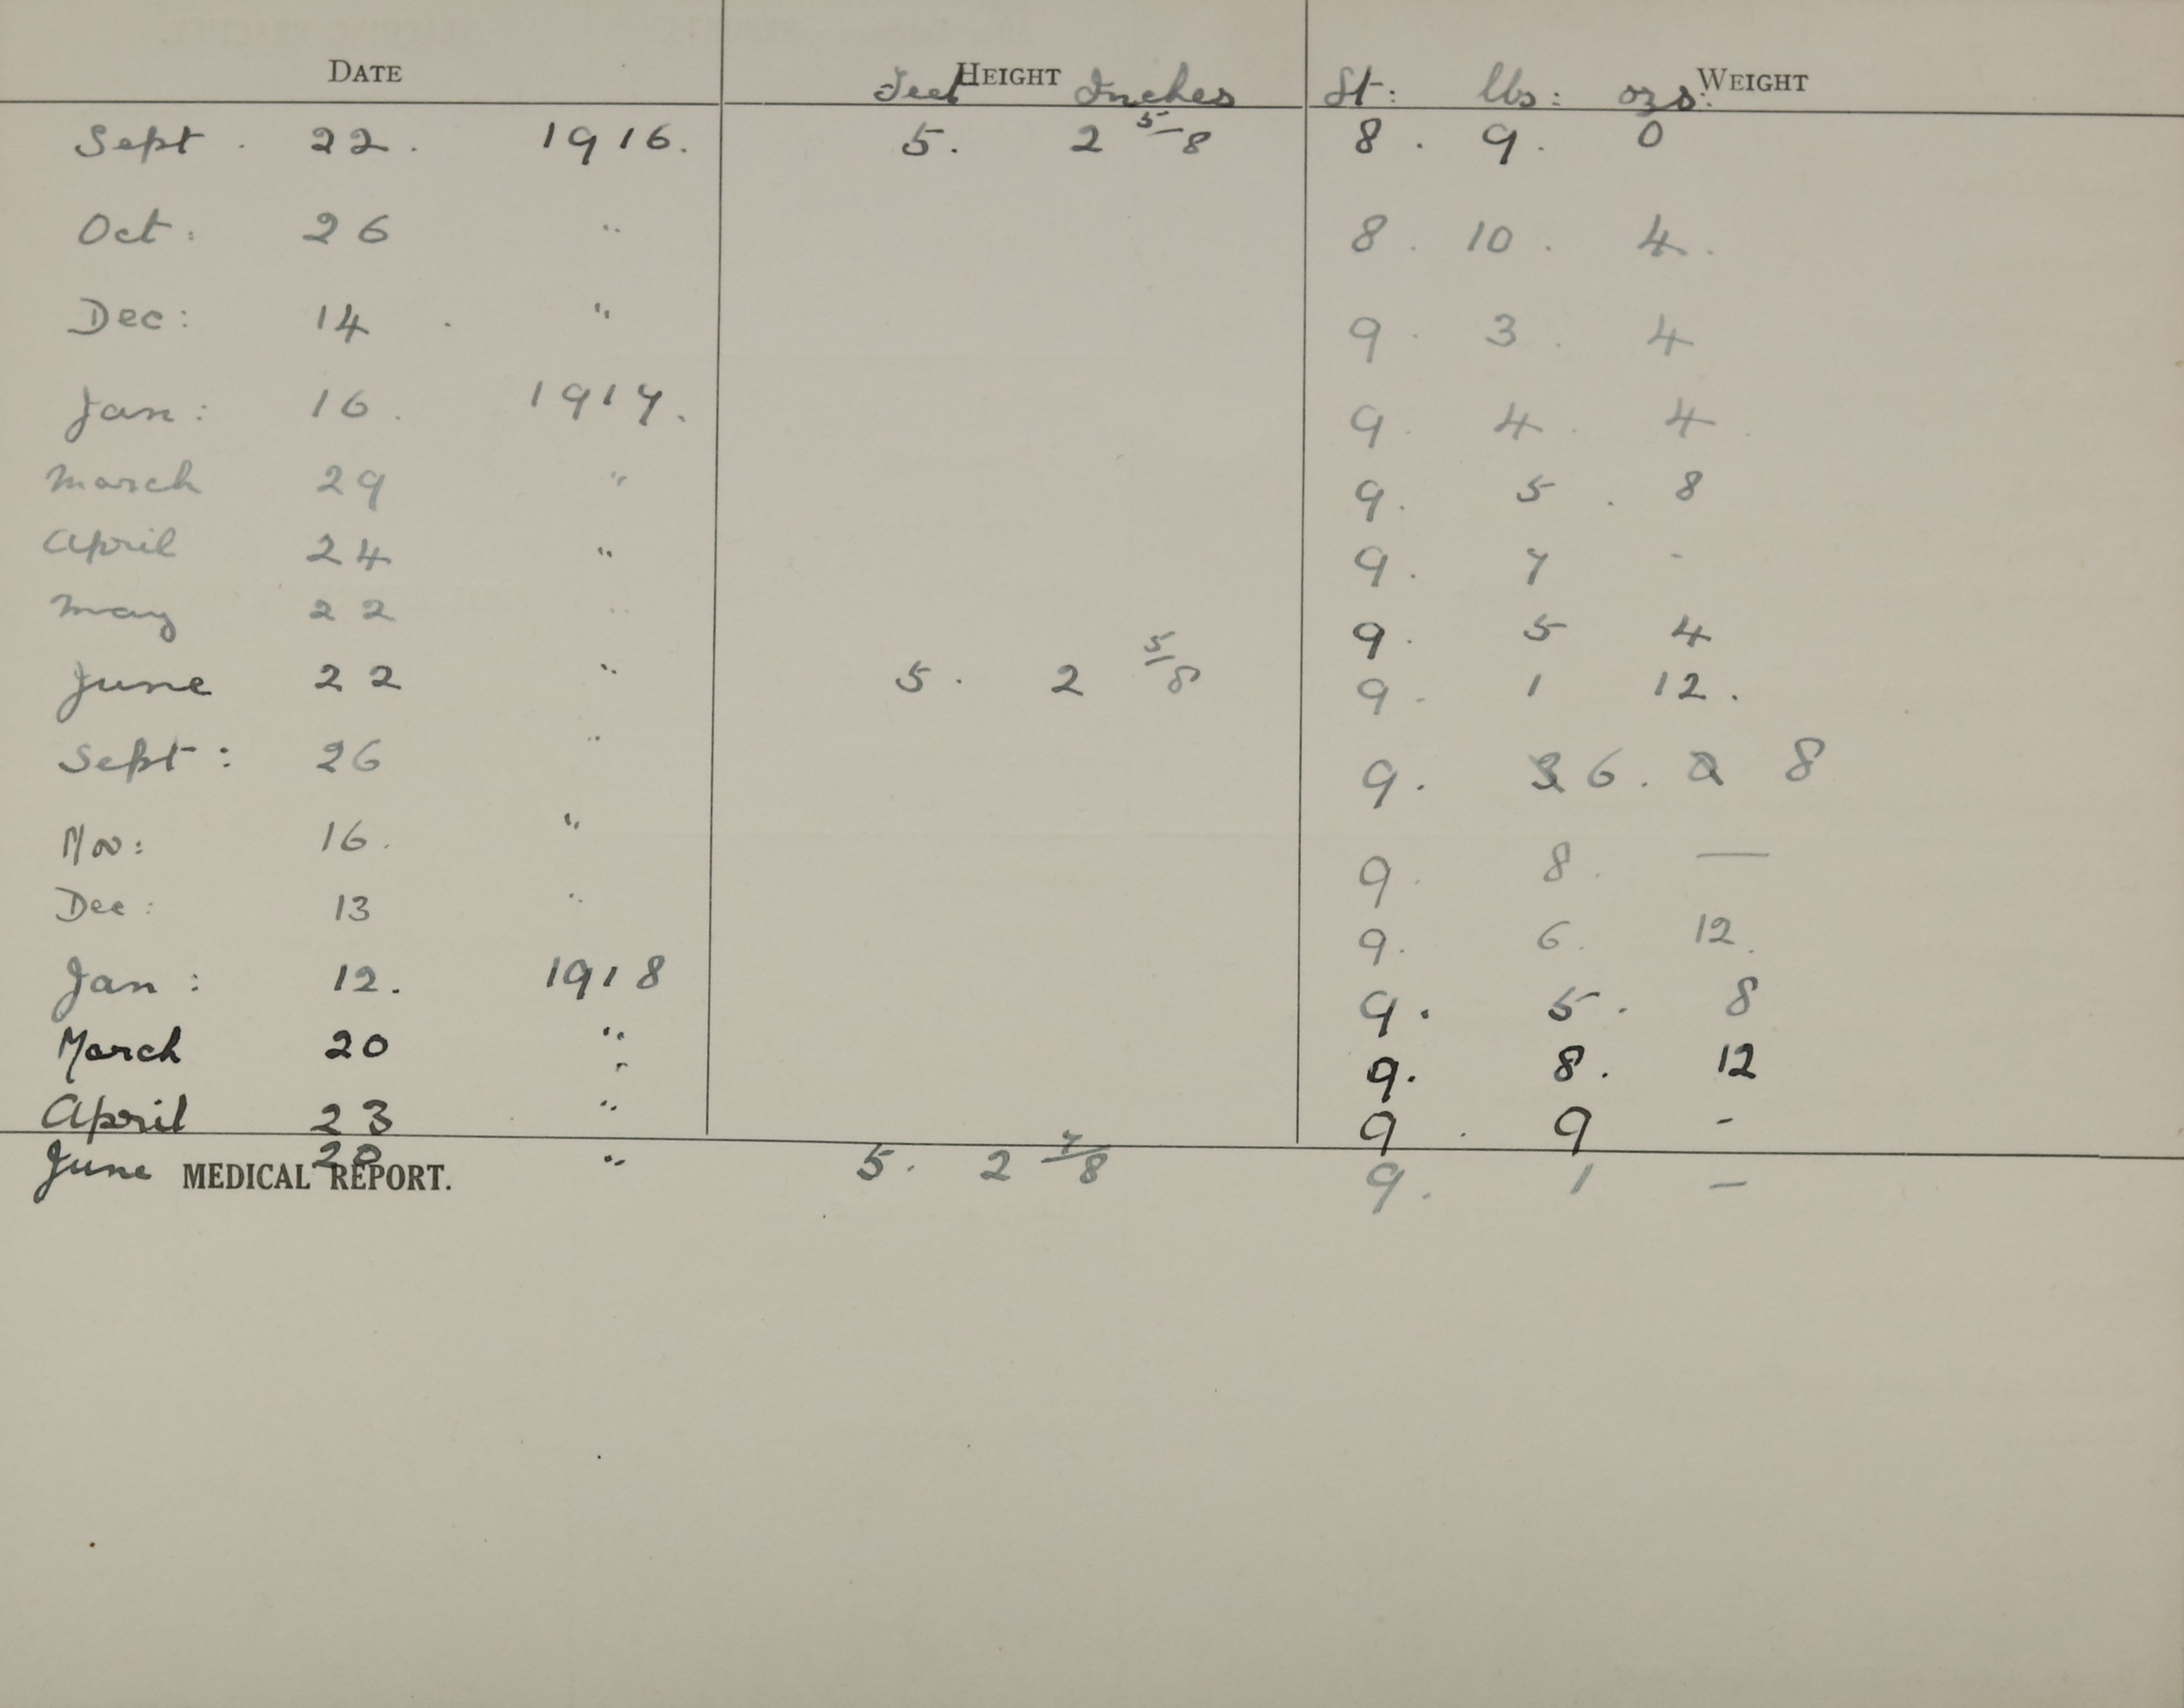 DATE HEIGHT WEIGHT
Feet Inches St: lbs: ozs:
Sept. 22. 1916. 5. 2 5/8 8. 9. 0
Oct: 26 " 8. 10. 4.
Dec: 14. " 9. 3. 4
Jan: 16. 1917. 9. 4. 4.
March 29 " 9. 5. 8
April 24 " 9. 7 -
May 22 " 9. 5 4
June 22 " 5. 2 5/8 9. 1 12.
Sept: 26 " 9. 6. 8
Nov: 16. " 9. 8. —
Dec: 13 " 9. 6. 12.
Jan: 12. 1918 9. 5. 8
March 20 " 9. 8. 12
April 23 " 9. 9 -
June 20 " 5. 2 7/8 9. 1 —
MEDICAL REPORT.